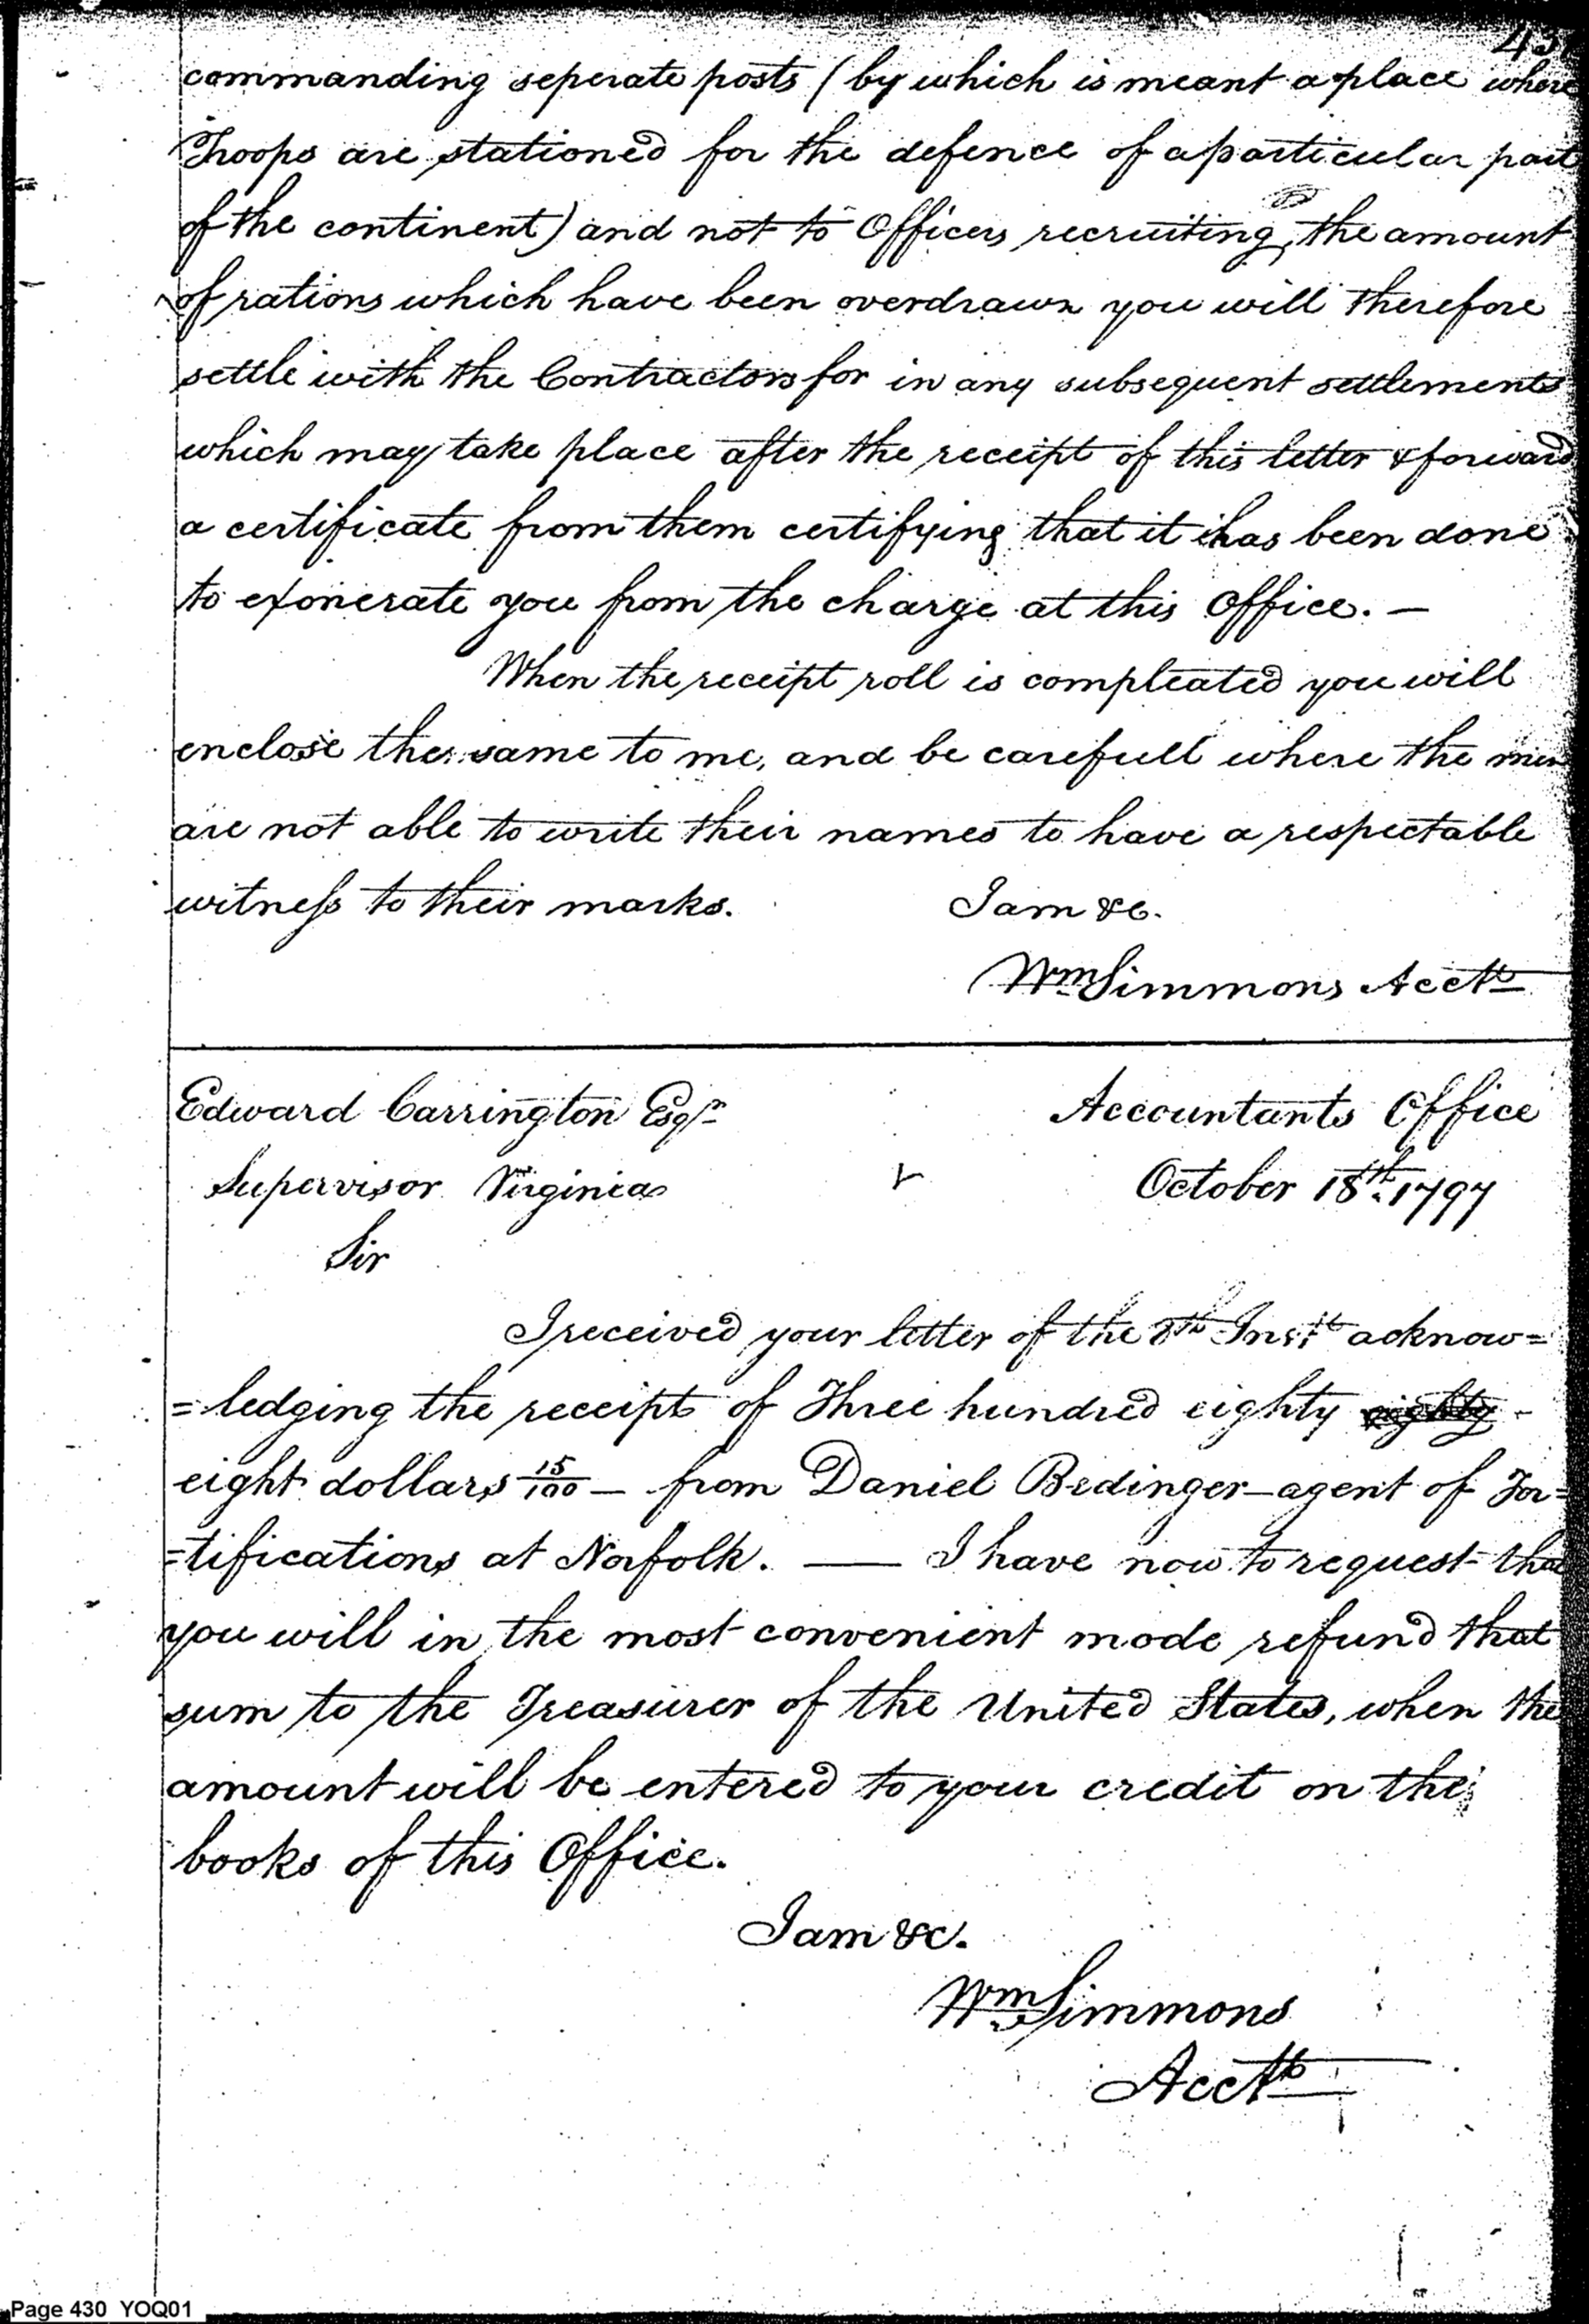 43
commanding seperate posts (by which is meant a place where
Troops are stationed for the defence of a particular part
of the continent) and not to Officers recruiting, the amount
of rations which have been overdrawn you will therefore
settle with the Contractors for in any subsequent settlements
which may take place after the receipt of this letter & forward
a certificate from them certifying that it has been done
to exonerate you from the charge at this Office. —
When the receipt roll is compleated you will
enclose the same to me, and be carefull where the men
are not able to write their names to have a respectable
witness to their marks. I am &c.
Wm Simmons Acctt
Edward Carrington Esqr Accountants Office
Supervisor Virginia October 18th 1797
Sir
I received your letter of the 8th Instt acknow=
=ledging the receipt of Three hundred eighty eighty
eight dollars 15/100 — from Daniel Bedinger agent of For=
=tifications at Norfolk. — I have now to request that
you will in the most convenient mode refund that
sum to the Treasurer of the United States, when the
amount will be entered to your credit on the
books of this Office.
I am &c.
Wm Simmons
Acctt
Page 430 YOQ01